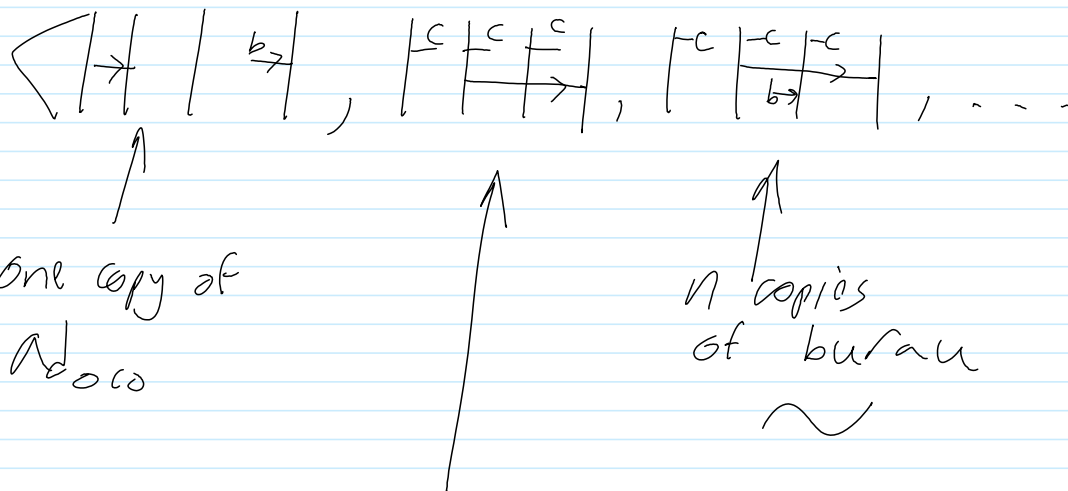 b , c c c , -c -c -c b , ....
one copy of
Ad
n copies
of burau